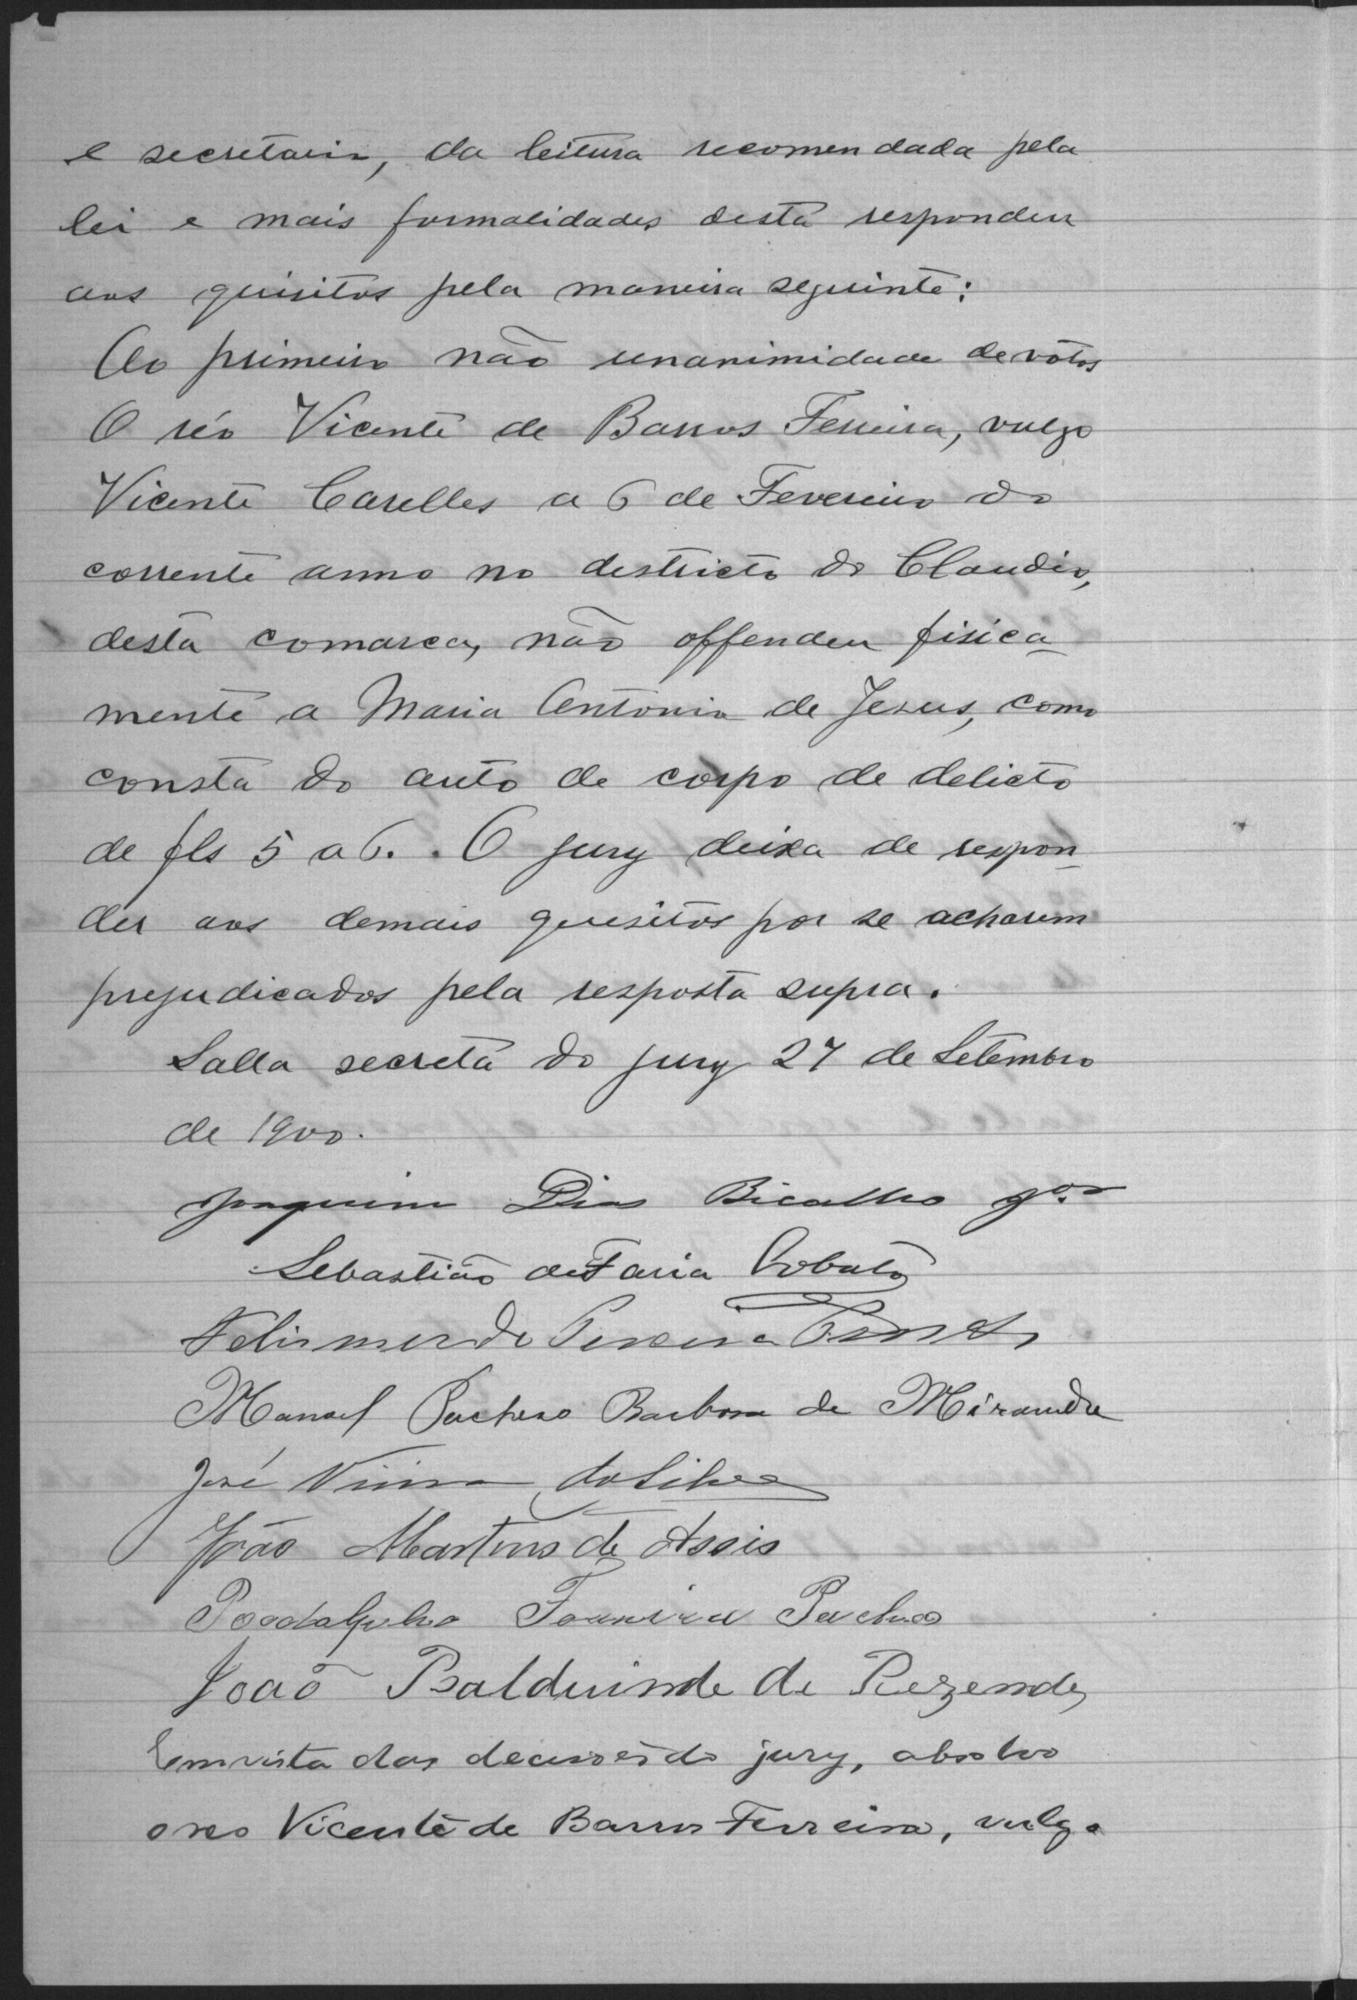 e secretario, da leitura recomendada pela
lei e mais formalidades desta respondeu
aos quisitos pela maneira seguinte:
Ao primeiro não unanimidade de votos
O réo Vicente de Barros Ferreira, vulgo
Vicente Carelles a 6 de Fevereiro do
corrente anno no destricto do Claudio,
desta comarca, não offendeu fisica-
mente a Maria Antonia de Jesus, como
consta do auto de corpo de delicto
de fls 5 a 6. . O jury deixa de respon-
der aos demais quesitos por se acharem
prejudicados pela resposta supra.
Salla secreta do jury 27 de Setembro
de 1900.
Joaquim Dias Bicalho
Sebastião de Faria Lobato
Pereira
Manoel Pacheco Barbosa de Miranda
José Vieira da Silva
João Martins de Assis
Pacheco
João Balduino de Rezende
Em vista das decisões do jury, absolvo
o reo Vicente de Barros Ferreira, vulgo